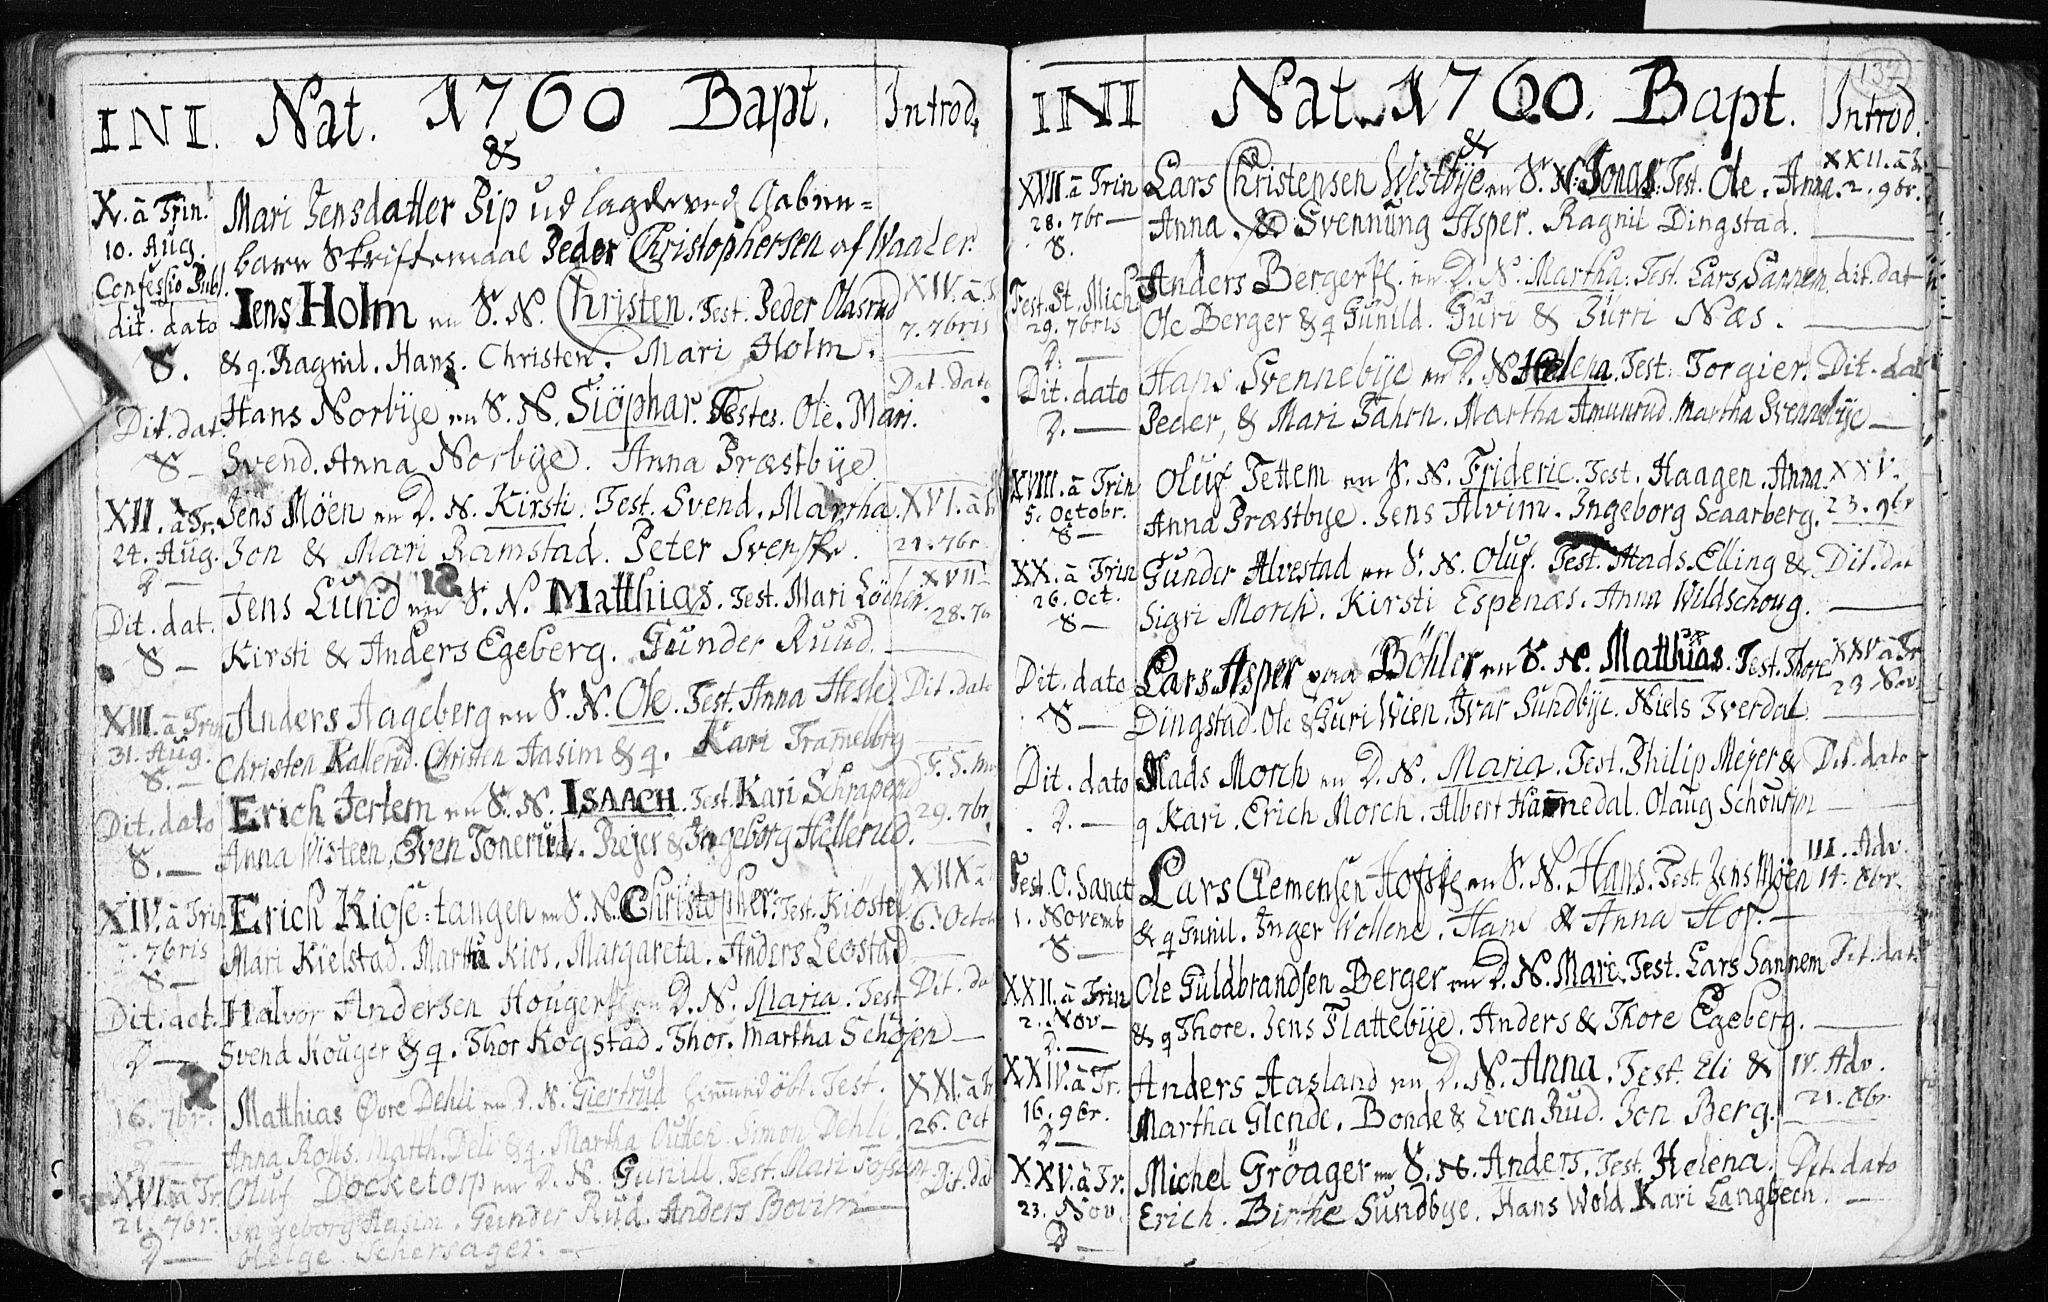 INI. Nat. & 1760 Bapt. Introd.
X. â Trin. Mari Jensdatter Pip udlagde ved aaben=
10. Aug. bare Skriftemaal Peder Christophersen af Waaler.
Confessio Publ.
dit. dato Jens Holm en S. N. Christen. Test. Peder Olasrud XIV. â Tr.
S. & q. Ragnil. Hans. Christen. Mari Holm. 7. 7bris
Dit. dat. Hans Norbÿe en S. N. Siöphar. Testes. Ole. Mari. Dit. dato
S — Svend. Anna Norbÿe. Anna Præstbÿe
XII. â Tr. Jens Möen en D. N. Kirsti. Test. Svend. Martha. XVI. â Tr.
24. Aug. Jon & Mari Ramstad. Peter Svenske. 21. 7br.
D —
Dit. dat. Jens Lund en S. N. Matthias. Test. Mari Löchen. XVII
S — Kirsti & Anders Egeberg. Gunder Ruud. 28. 7b
XIII. â Trin Anders Hageberg en S. N. Ole. Test. Anna Hesle. Dit. dato
31. Aug. Christen Kallerud. Christen Aasim & q. Kari Tramelborg
S. —
Dit. dato Erich Jertem en S. N. ISAACH. Test. Kari Schraperud F. S. Mic
S. — Anna Wisteen, Even Tonerud. Rejer & Ingeborg Hellerud. 29. 7br.
XIV. â Trin Erich Kiose=tangen en S. N. Christopher. Test. Kiöstel
7. 7bris Mari Kielstad. Martha Kios. Margareta. Anders Leostad 6. Octob
S —
Dit. dat. Halvor Andersen Houger en D. N. Maria. Test. Dit. dat
D — Svend Kouger & q. Thor Kogstad. Thor. Martha Schöjen —
16. 7br. Matthias Øvre Dehli en D. N. Giertrud Test. XXI. â Tr
D — Anna Rolls. Matth. Deli & q. Martha Outen. Simon Dehli. 26. Oct
XVI. â Tr Oluf Docketorp en D. N. Gunill. Test. Mari Fossum Dit. dat
21. 7br. Ingeborg Aasim. Gunder Rud. Anders Bovim
D — Helge Schersager. —
137
INI Nat. & 1760. Bapt. Introd.
XVII. â Trin Lars Christensen Westbÿe en S. N. Jonas. Test. Ole. Anna. XXII. â Tr
28. 7br — Anna. & Svennung Asper. Ragnil Dingstad. 2. 9br.
S.
Fest. St. Mich. Anders Berger en D. N. Martha. Test. Lars Sannem. dit. dat
29. 7bris Ole Berger & q Gunild. Guri & Jurri Næs.
D. —
Dit. dato Hans Svennebÿe en D. N. Helena. Test. Torgier. Dit. dat
D. — Peder, & Mari Fahrn. Martha Amunrud. Martha Svennebÿe —
XVIII. â Trin Oluf Tettem en S. N. Frideric. Test. Haagen. Anna. XXV.
5. Octobr. Anna Præstbye. Jens Alvim. Ingeborg Scaarberg. 23. 9br
S —
XX. â Trin Gunder Alvestad en S. N. Oluf. Test. Mads. Elling & Dit. dat
26. Oct. Sigri Morch. Kirsti Espenæs. Anna Wildschoug.
S —
Dit. dato Lars Asper paa Böhler en S. N. Matthias. Test. Thore XXV â Tr
S — Dingstad. Ole & Guri Wien. Ivar Sundbÿe. Niels Tverdal 23 Nov.
Dit. dato Mads Morch en D. N. Maria. Test. Philip Mejer & Dit. dato
D. — q Kari. Erich Morch. Albert Hannedal. Olaug Schourim
Fest. O. Sanct Lars Clemensen Hof en S. N. Hans. Test. Jens Möen III. Adv.
1. Novemb & q Gunil. Inger Wollene. Hans & Anna Hof. — 14. Xbr.
S —
XXII. â Trin Ole Guldbrandsen Berger en D. N. Mari. Test. Lars Sannem Dit. dat.
2. Nov — & q Thore. Jens Flattebÿe. Anders & Thore Egeberg.
D. —
XXIV. â Tr. Anders Aasland en D. N. Anna. Test. Eli & IV. Adv.
16. 9br. Martha Glende. Bonde & Even Rud. Jon Berg. 21. Xbr
D —
XXV. â Tr. Michel Gröager en S. N. Anders. Test. Helena. Dit. dato
23. Nov. Erich. Birthe Sundbye. Hans Wold Kari Langbech. —
D —